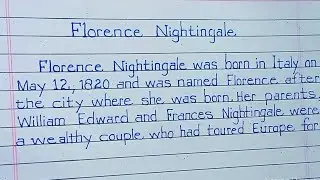 Florence Nightingale.
Florence Nightingale was born in Italy on
May 12, 1820 and was named Florence after
the city where she was born. Her parents,
William Edward and Frances Nightingale were
a wealthy couple who had toured Europe for